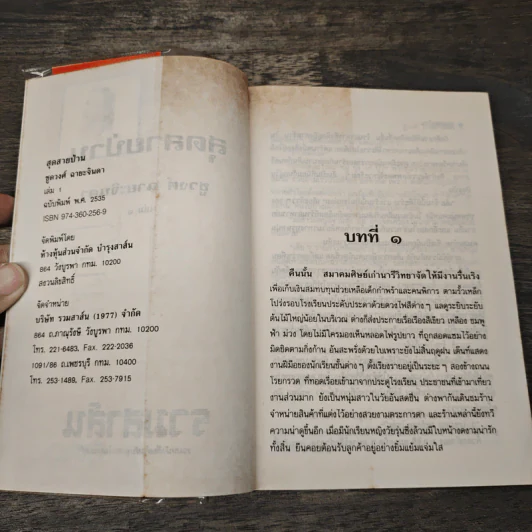 สุดสายป่าน
ชูวงศ์ ฉายะจินดา
เล่ม 1
ฉบับพิมพ์ พ.ศ. 2535
ISBN 974-360-256-9
จัดพิมพ์โดย
ห้างหุ้นส่วนจำกัด บำรุงสาส์น
864 วังบูรพา กทม. 10200
สงวนลิขสิทธิ์
จัดจำหน่าย
บริษัท รวมสาส์น (1977) จำกัด
864 ถ.ภาณุรังษี วังบูรพา กทม. 10200
โทร. 221-6483, Fax. 222-2036
1091/86 ถ.เพชรบุรี กทม. 10400
โทร. 253-1489, Fax. 253-7915
บทที่ ๑
คืนนั้น สมาคมศิษย์เก่านารีวิทยาจัดให้มีงานรื่นเริง
เพื่อเก็บเงินสมทบทุนช่วยเหลือเด็กกำพร้าและคนพิการ ตามรั้วเหล็ก
โปร่งรอบโรงเรียนประดับประดาด้วยดวงไฟสีต่างๆ แลดูระยิบระยับ
ต้นไม้ใหญ่น้อยในบริเวณ ต่างก็ส่งประกายเรื่อเรืองสีเขียว เหลือง ชมพู
ฟ้า ม่วง โดยไม่มีใครมองเห็นหลอดไฟรูปยาว ที่ถูกสอดแซมไว้อย่าง
มิดชิดตามกิ่งก้าน อันสะพรั่งด้วยใบเพราะยังไม่สิ้นฤดูฝน เต็นท์แสดง
งานฝีมือของนักเรียนชั้นต่างๆ ตั้งเรียงรายอยู่เป็นระยะๆ สองข้างถนน
โรยกรวด ที่ทอดเรื่อยเข้ามาจากประตูโรงเรียน ประชาชนที่เข้ามาเที่ยว
งานส่วนมาก ยังเป็นหนุ่มสาวในวัยอันสดชื่น ต่างพากันเดินชมร้าน
จำหน่ายสินค้าที่แต่งไว้อย่างสวยงามตระการตา และร้านเหล่านี้ยังทวี
ความน่าดูขึ้นอีก เมื่อมีนักเรียนหญิงวัยรุ่นซึ่งล้วนมีใบหน้างดงามน่ารัก
ทั้งสิ้น ยืนคอยต้อนรับลูกค้าอยู่อย่างยิ้มแย้มแจ่มใส
รวมสาส์น